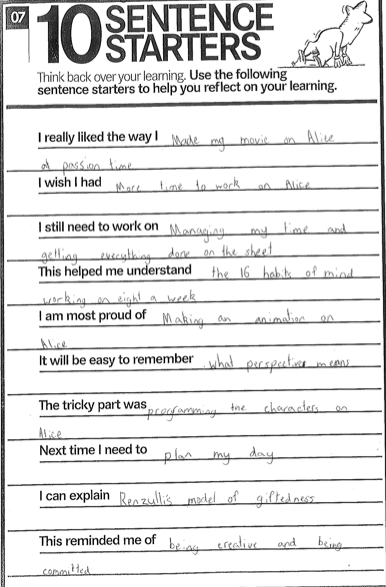 07
10 SENTENCE
STARTERS
Think back over your learning. Use the following
sentence starters to help you reflect on your learning.
I really liked the way I Made my movie on Alice
at passion time
I wish I had More time to work on Alice
I still need to work on Managing my time and
getting everything done on the sheet
This helped me understand the 16 habits of mind
working on eight a week
I am most proud of Making an animation on
Alice
It will be easy to remember what perspective means
The tricky part was programming the characters on
Alice
Next time I need to plan my day
I can explain Renzulli's model of giftedness
This reminded me of being creative and being
committed